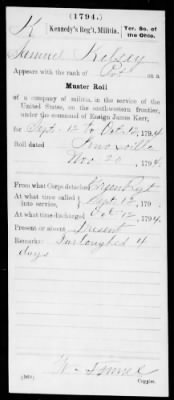 (1794.)
K Kennedy's Reg't, Militia. Ter. So. of the Ohio.
Samuel Kelsey
Appears with the rank of Pvt on a
Muster Roll
of a company of militia, in the service of the
United States, on the southwestern frontier,
under the command of Ensign James Kerr,
for Sept. 12 to Oct. 12, 1794
Roll dated Knoxville
Nov. 20, 1794.
From what Corps detached Regt
At time called into service, Sept 12, 179
At what time discharged Oct 12, 1794
Present or absent Present
Remarks: Furloughed 4
days
Copyist.